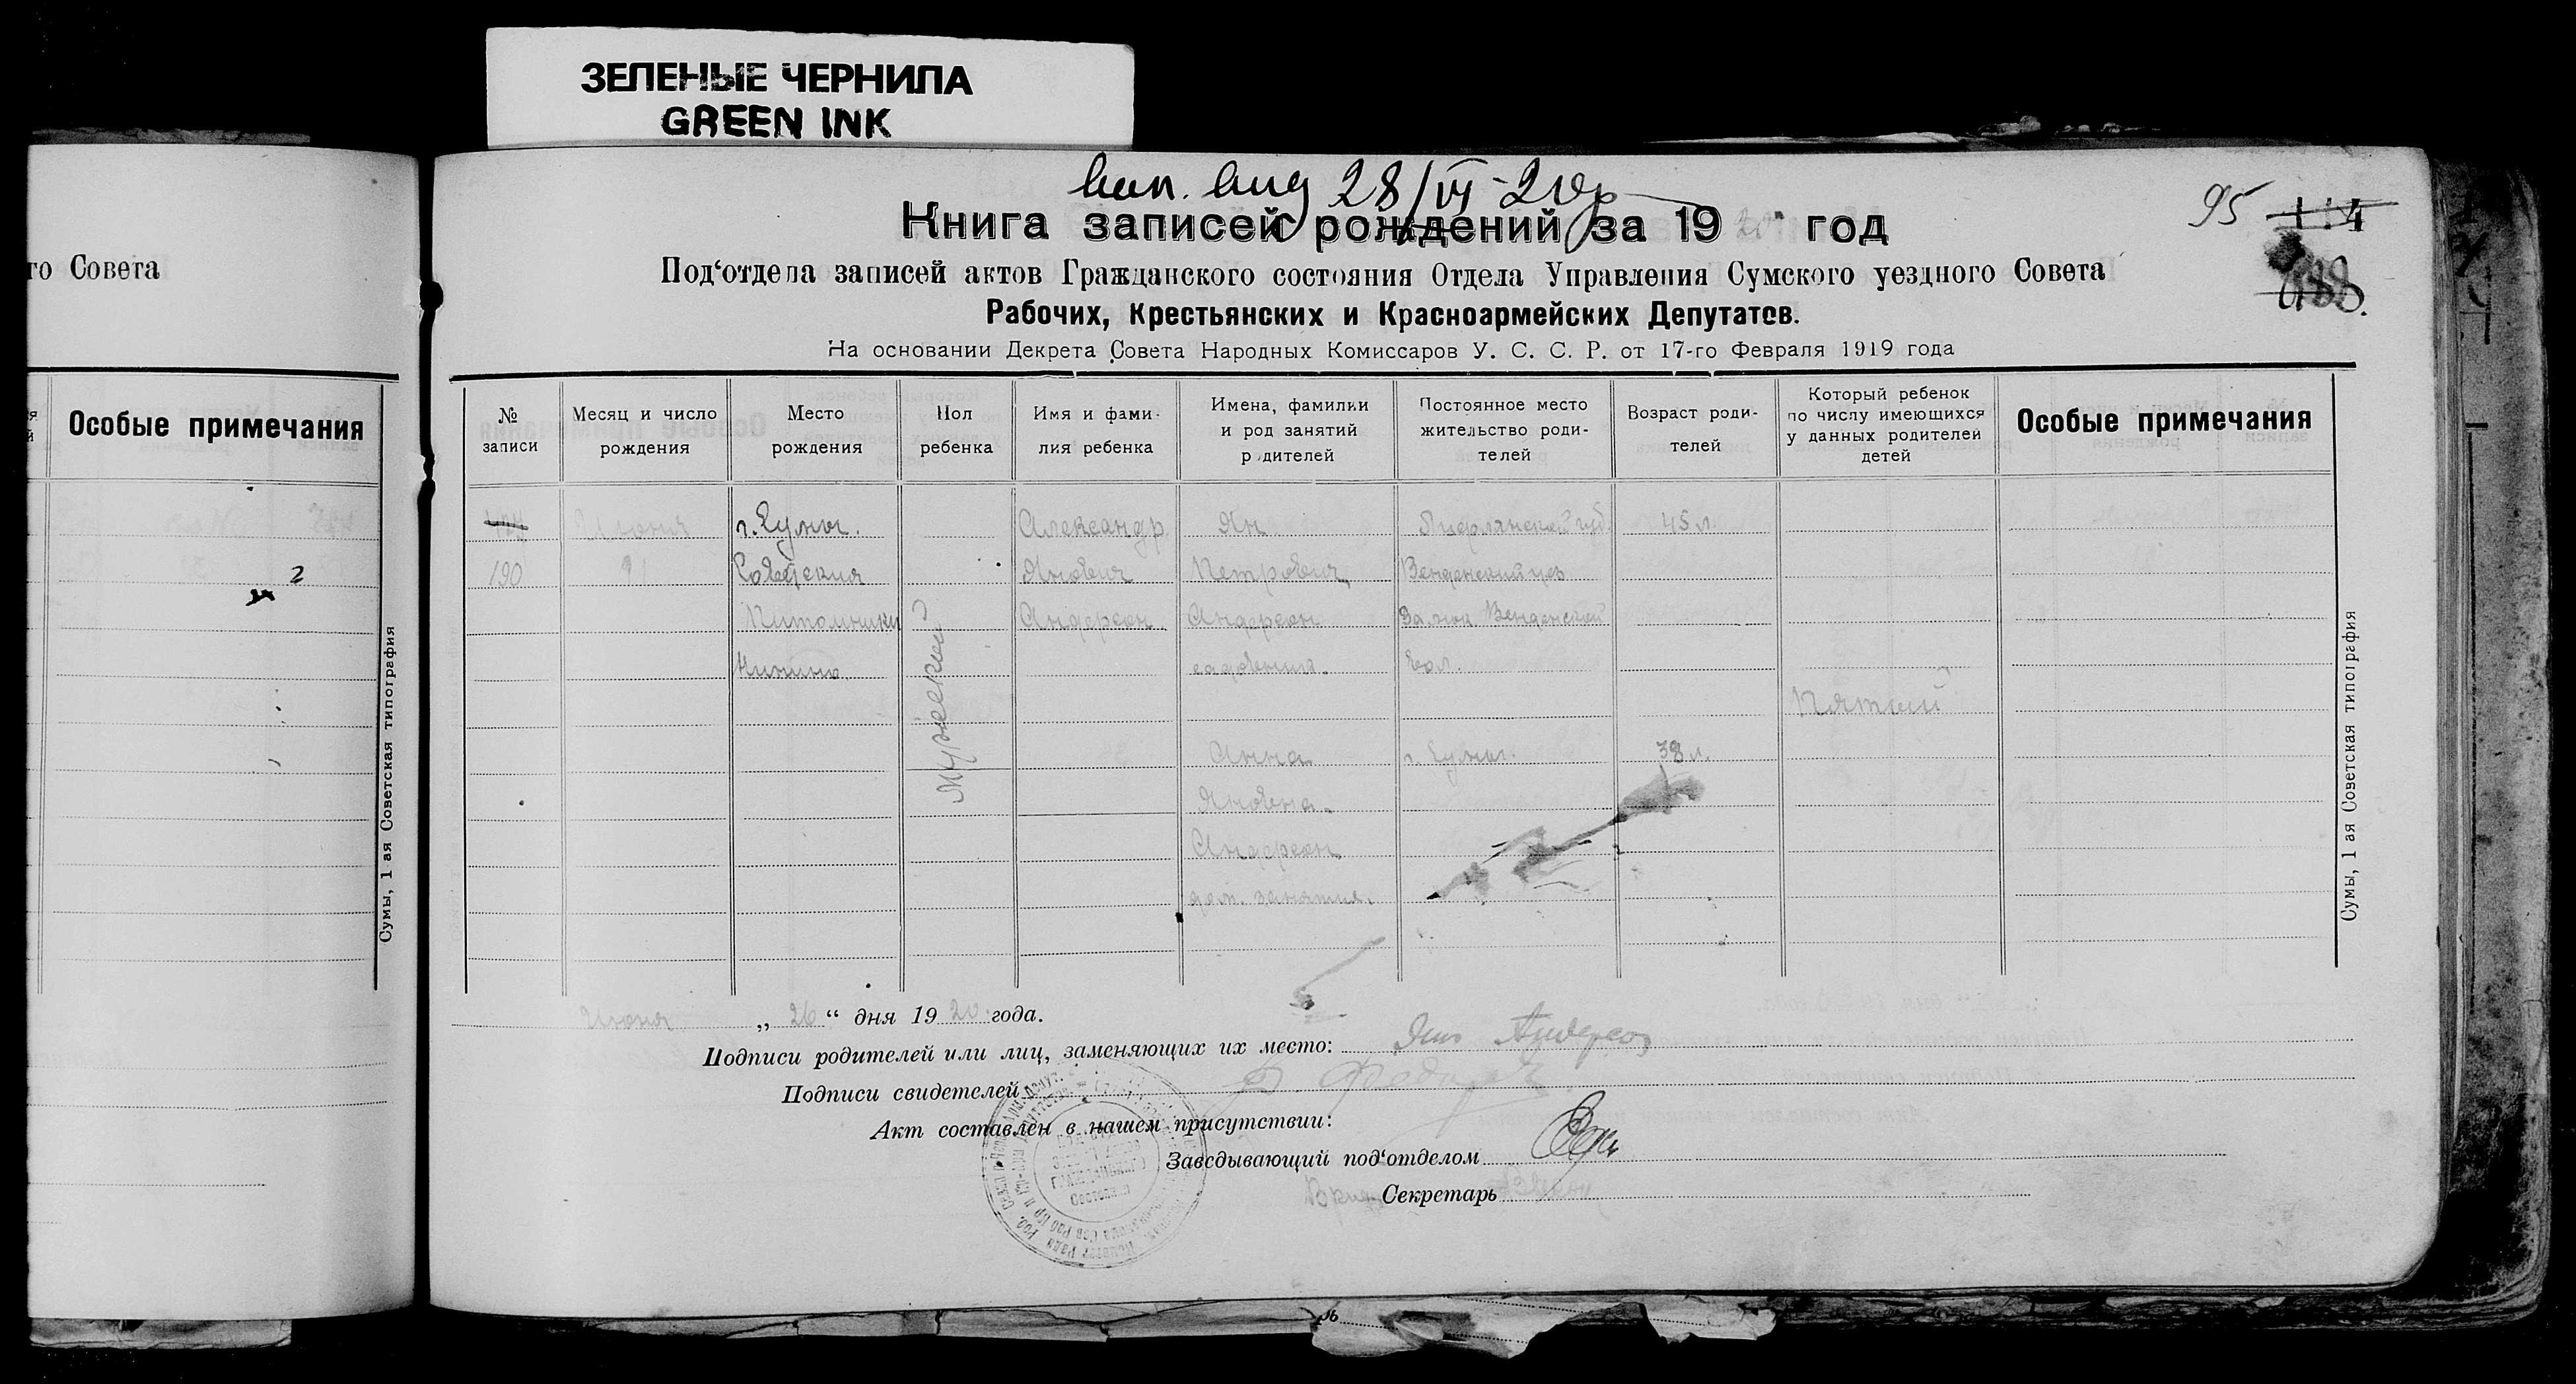 ЗЕЛЕНЫЕ ЧЕРНИЛА
GREEN INK
28/VI-20г
Книга записей рождений за 1920 год
95
114
188.
Под‘отдела записей актов Гражданского состояния Отдела Управления Сумского уездного Совета
Рабочих, Крестьянских и Красноармейских Депутатов.
На основании Декрета Совета Народных Комиссаров У. С. С. Р. от 17-го Февраля 1919 года
го Совета
Особые примечания
2
Сумы, 1 ая Советская типография
№ записи
Месяц и число рождения
Место рождения
Пол ребенка
Имя и фами-
лия ребенка
Имена, фамилии
и род занятий
родителей
Постоянное место
жительство роди-
телей
Возраст роди-
телей
Который ребенок
по числу имеющихся
у данных родителей
детей
Особые примечания
Июня г. Сумы. Александр Ян Лифляндской губ. 45 л.
190 Советския Янович Петрович Венденский уез
Питомники Андерсон Андерсон Венденской
садовник. вол.
Мужеский
Пятый
Анна г. Сумы. 38 л.
Яновна
Андерсон
дом. занятия.
Сумы, 1 ая Советская типография
Июня „26“ дня 1920 года.
Подписи родителей или лиц, заменяющих их место: Ян Андерсон
Подписи свидетелей
Акт составлен в нашем присутствии:
Заведывающий под‘отделом
Секретарь